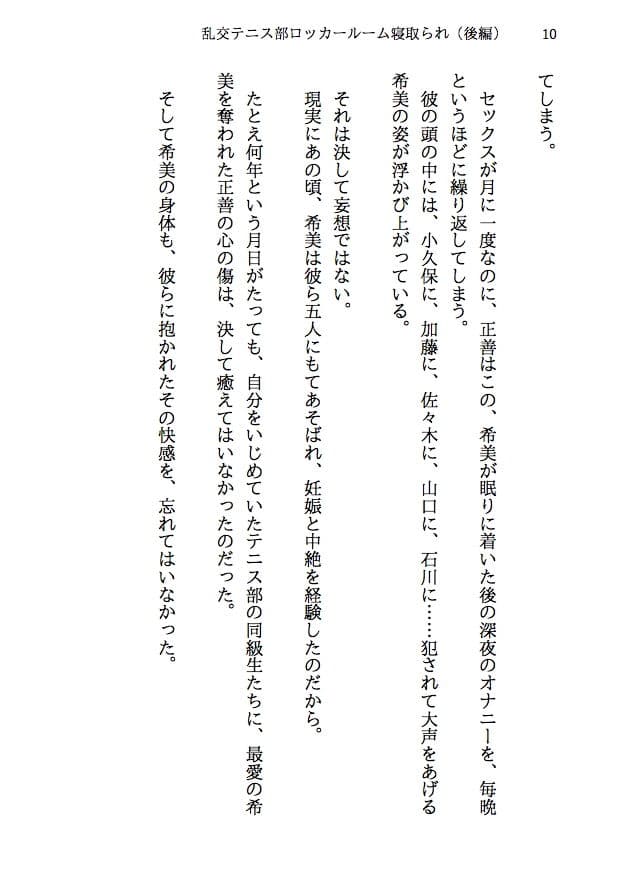 乱交テニス部ロッカールーム寝取られ（後編）　10
てしまう。
　セックスが月に一度なのに、正善はこの、希美が眠りに着いた後の深夜のオナニーを、毎晩
というほどに繰り返してしまう。
　彼の頭の中には、小久保に、加藤に、佐々木に、山口に、石川に……犯されて大声をあげる
希美の姿が浮かび上がっている。
　それは決して妄想ではない。
　現実にあの頃、希美は彼ら五人にもてあそばれ、妊娠と中絶を経験したのだから。
　たとえ何年という月日がたっても、自分をいじめていたテニス部の同級生たちに、最愛の希
美を奪われた正善の心の傷は、決して癒えてはいなかったのだった。
　そして希美の身体も、彼らに抱かれたその快感を、忘れてはいなかった。